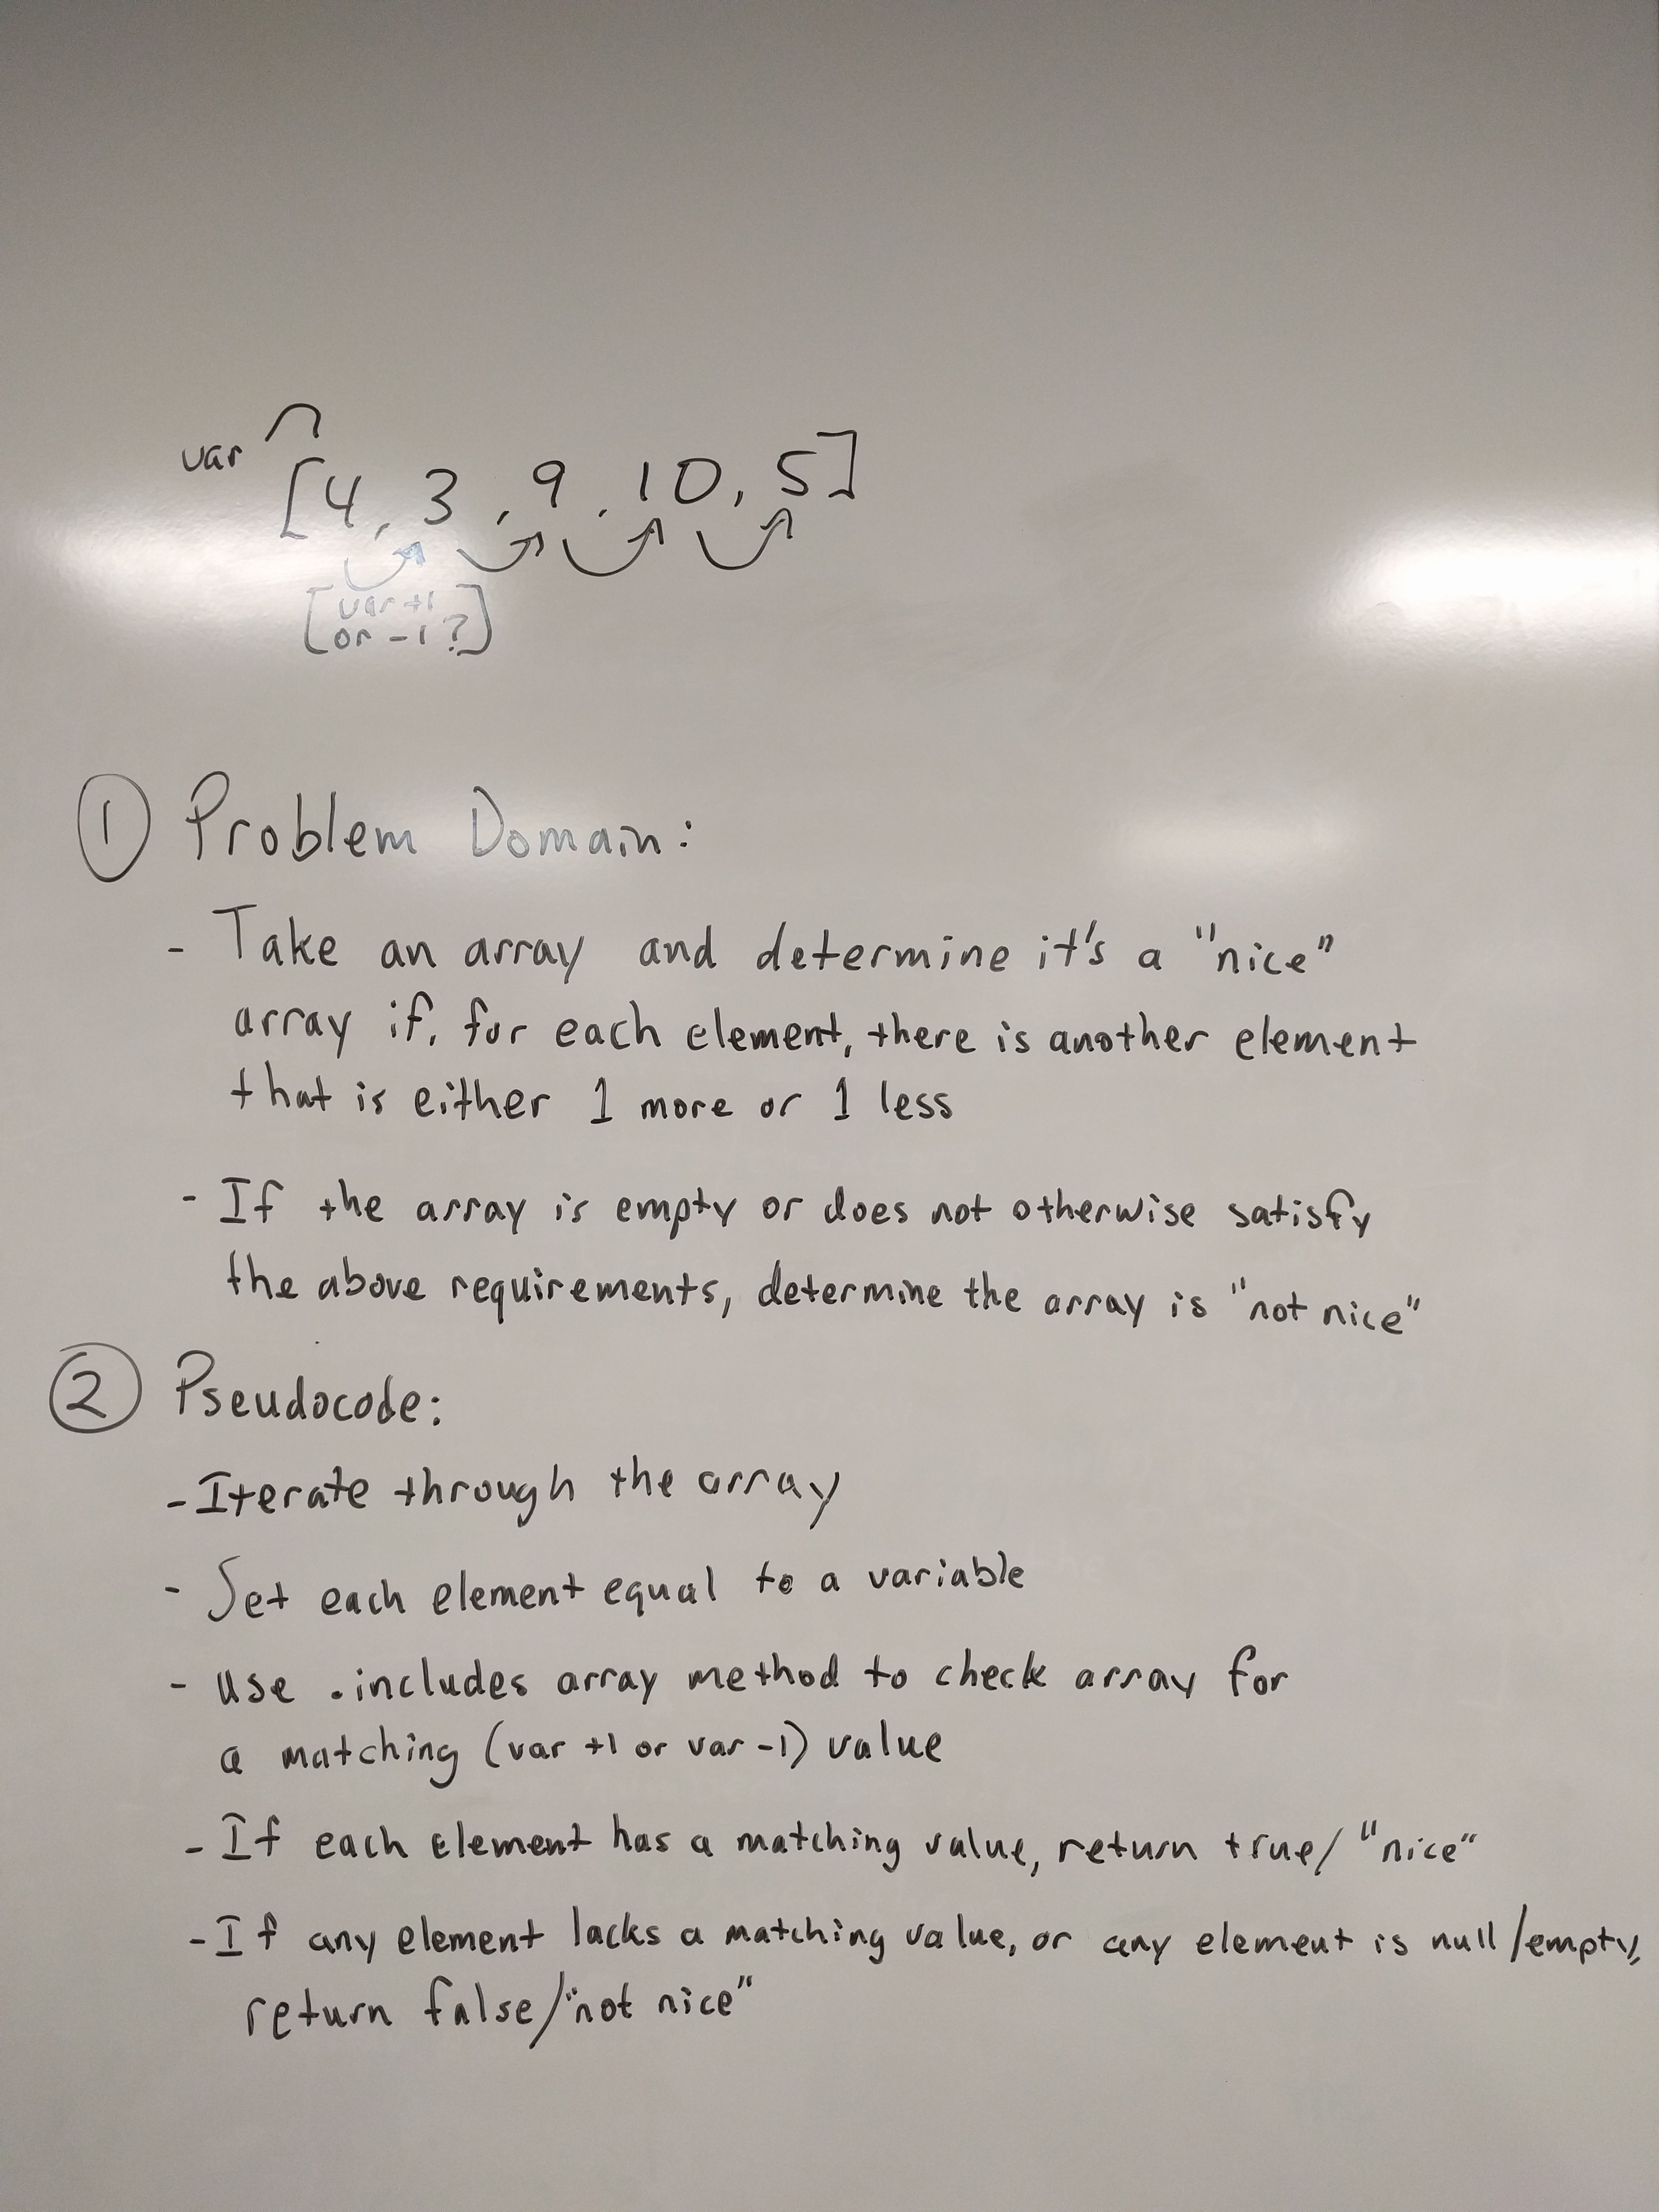 var
[4, 3, 9, 10, 5]
[var +1
or -1?]
① Problem Domain:
- Take an array and determine it's a "nice"
array if, for each element, there is another element
that is either 1 more or 1 less
- If the array is empty or does not otherwise satisfy
the above requirements, determine the array is "not nice"
② Pseudocode:
- Iterate through the array
- Set each element equal to a variable
- Use .includes array method to check array for
a matching (var +1 or var -1) value
- If each element has a matching value, return true/"nice"
- If any element lacks a matching value, or any element is null/empty,
return false/"not nice"